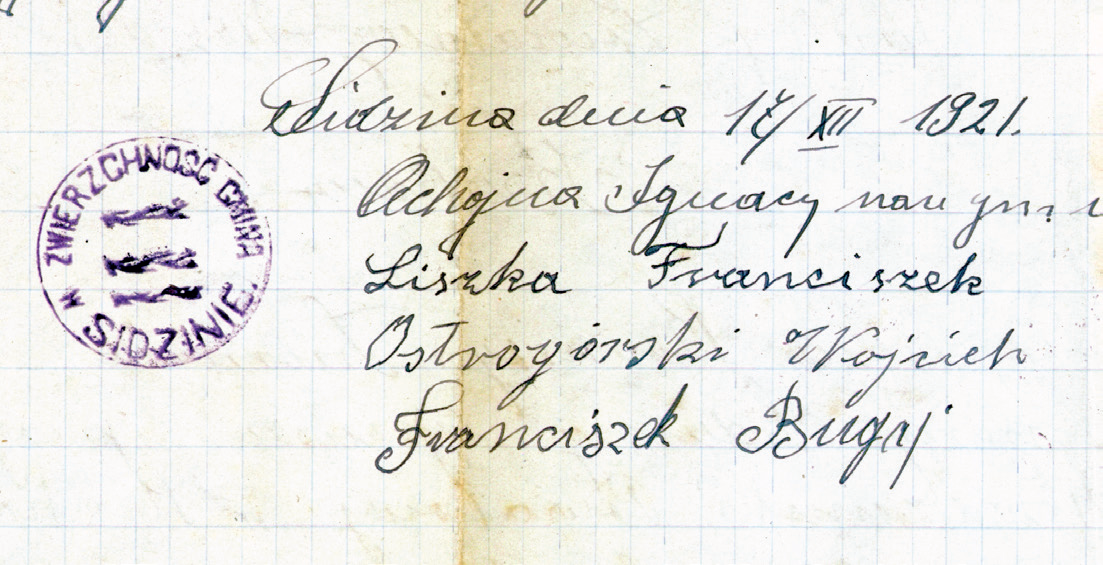 ZWIERZCHNOŚĆ GMINA
W SIDZINIE.
Sidzina dnia 17/XII 1921.
Ochojna Ignacy
Liszka Franciszek
Ostrogórski Wojcich
Franciszek Bugaj